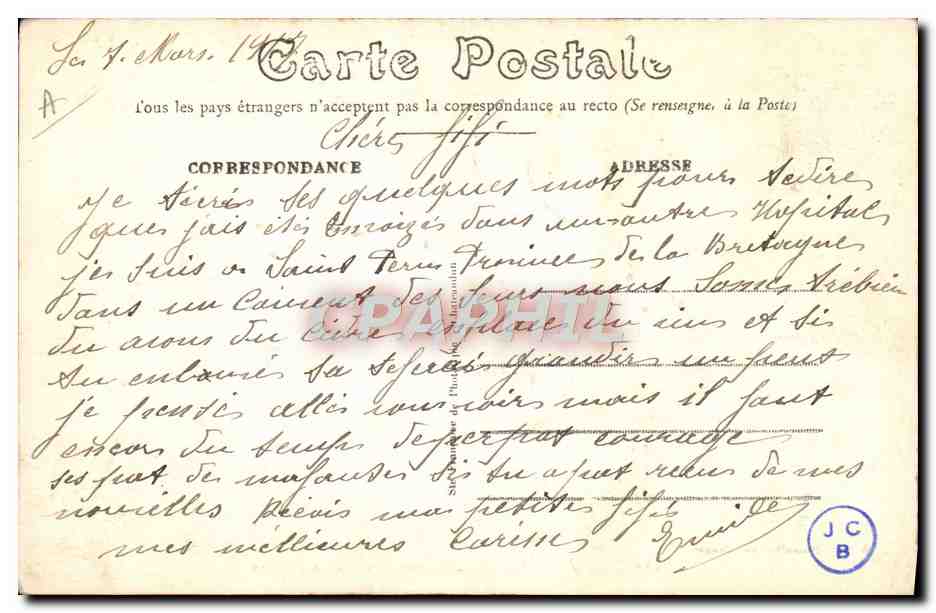 Le 7. Mars. 1917
Carte Postale
A
Tous les pays étrangers n'acceptent pas la correspondance au recto (Se renseigner à la Poste)
Chère fifi
CORRESPONDANCE
ADRESSE
Je técris ses quelques mots pour tedire
que jais étés Envoiyés dans un autre Hopital
je suis a Saint Province de la Bretagne
dans un Couvent des Seurs nous Somes trébien
du avons du Cidre emplace du vin et si
tu en
je pensés allés vous voir mais il faut
encore du temps courage
ses pat de si tu a pat recus de mes
nouvelles Recois ma petites fifi
mes mellieures Carisses Emile
CPAPHIL
Sté Française de Photographie Chateaudun
J C
B